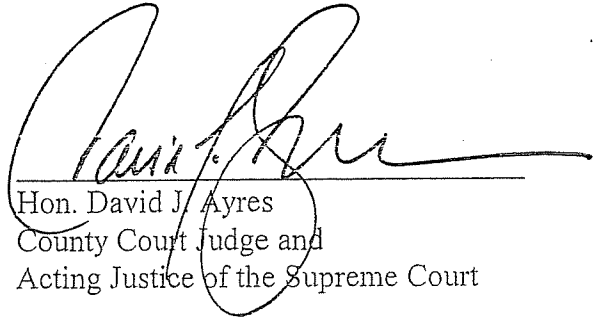 David J. Ayres
Hon. David J. Ayres
County Court Judge and
Acting Justice of the Supreme Court